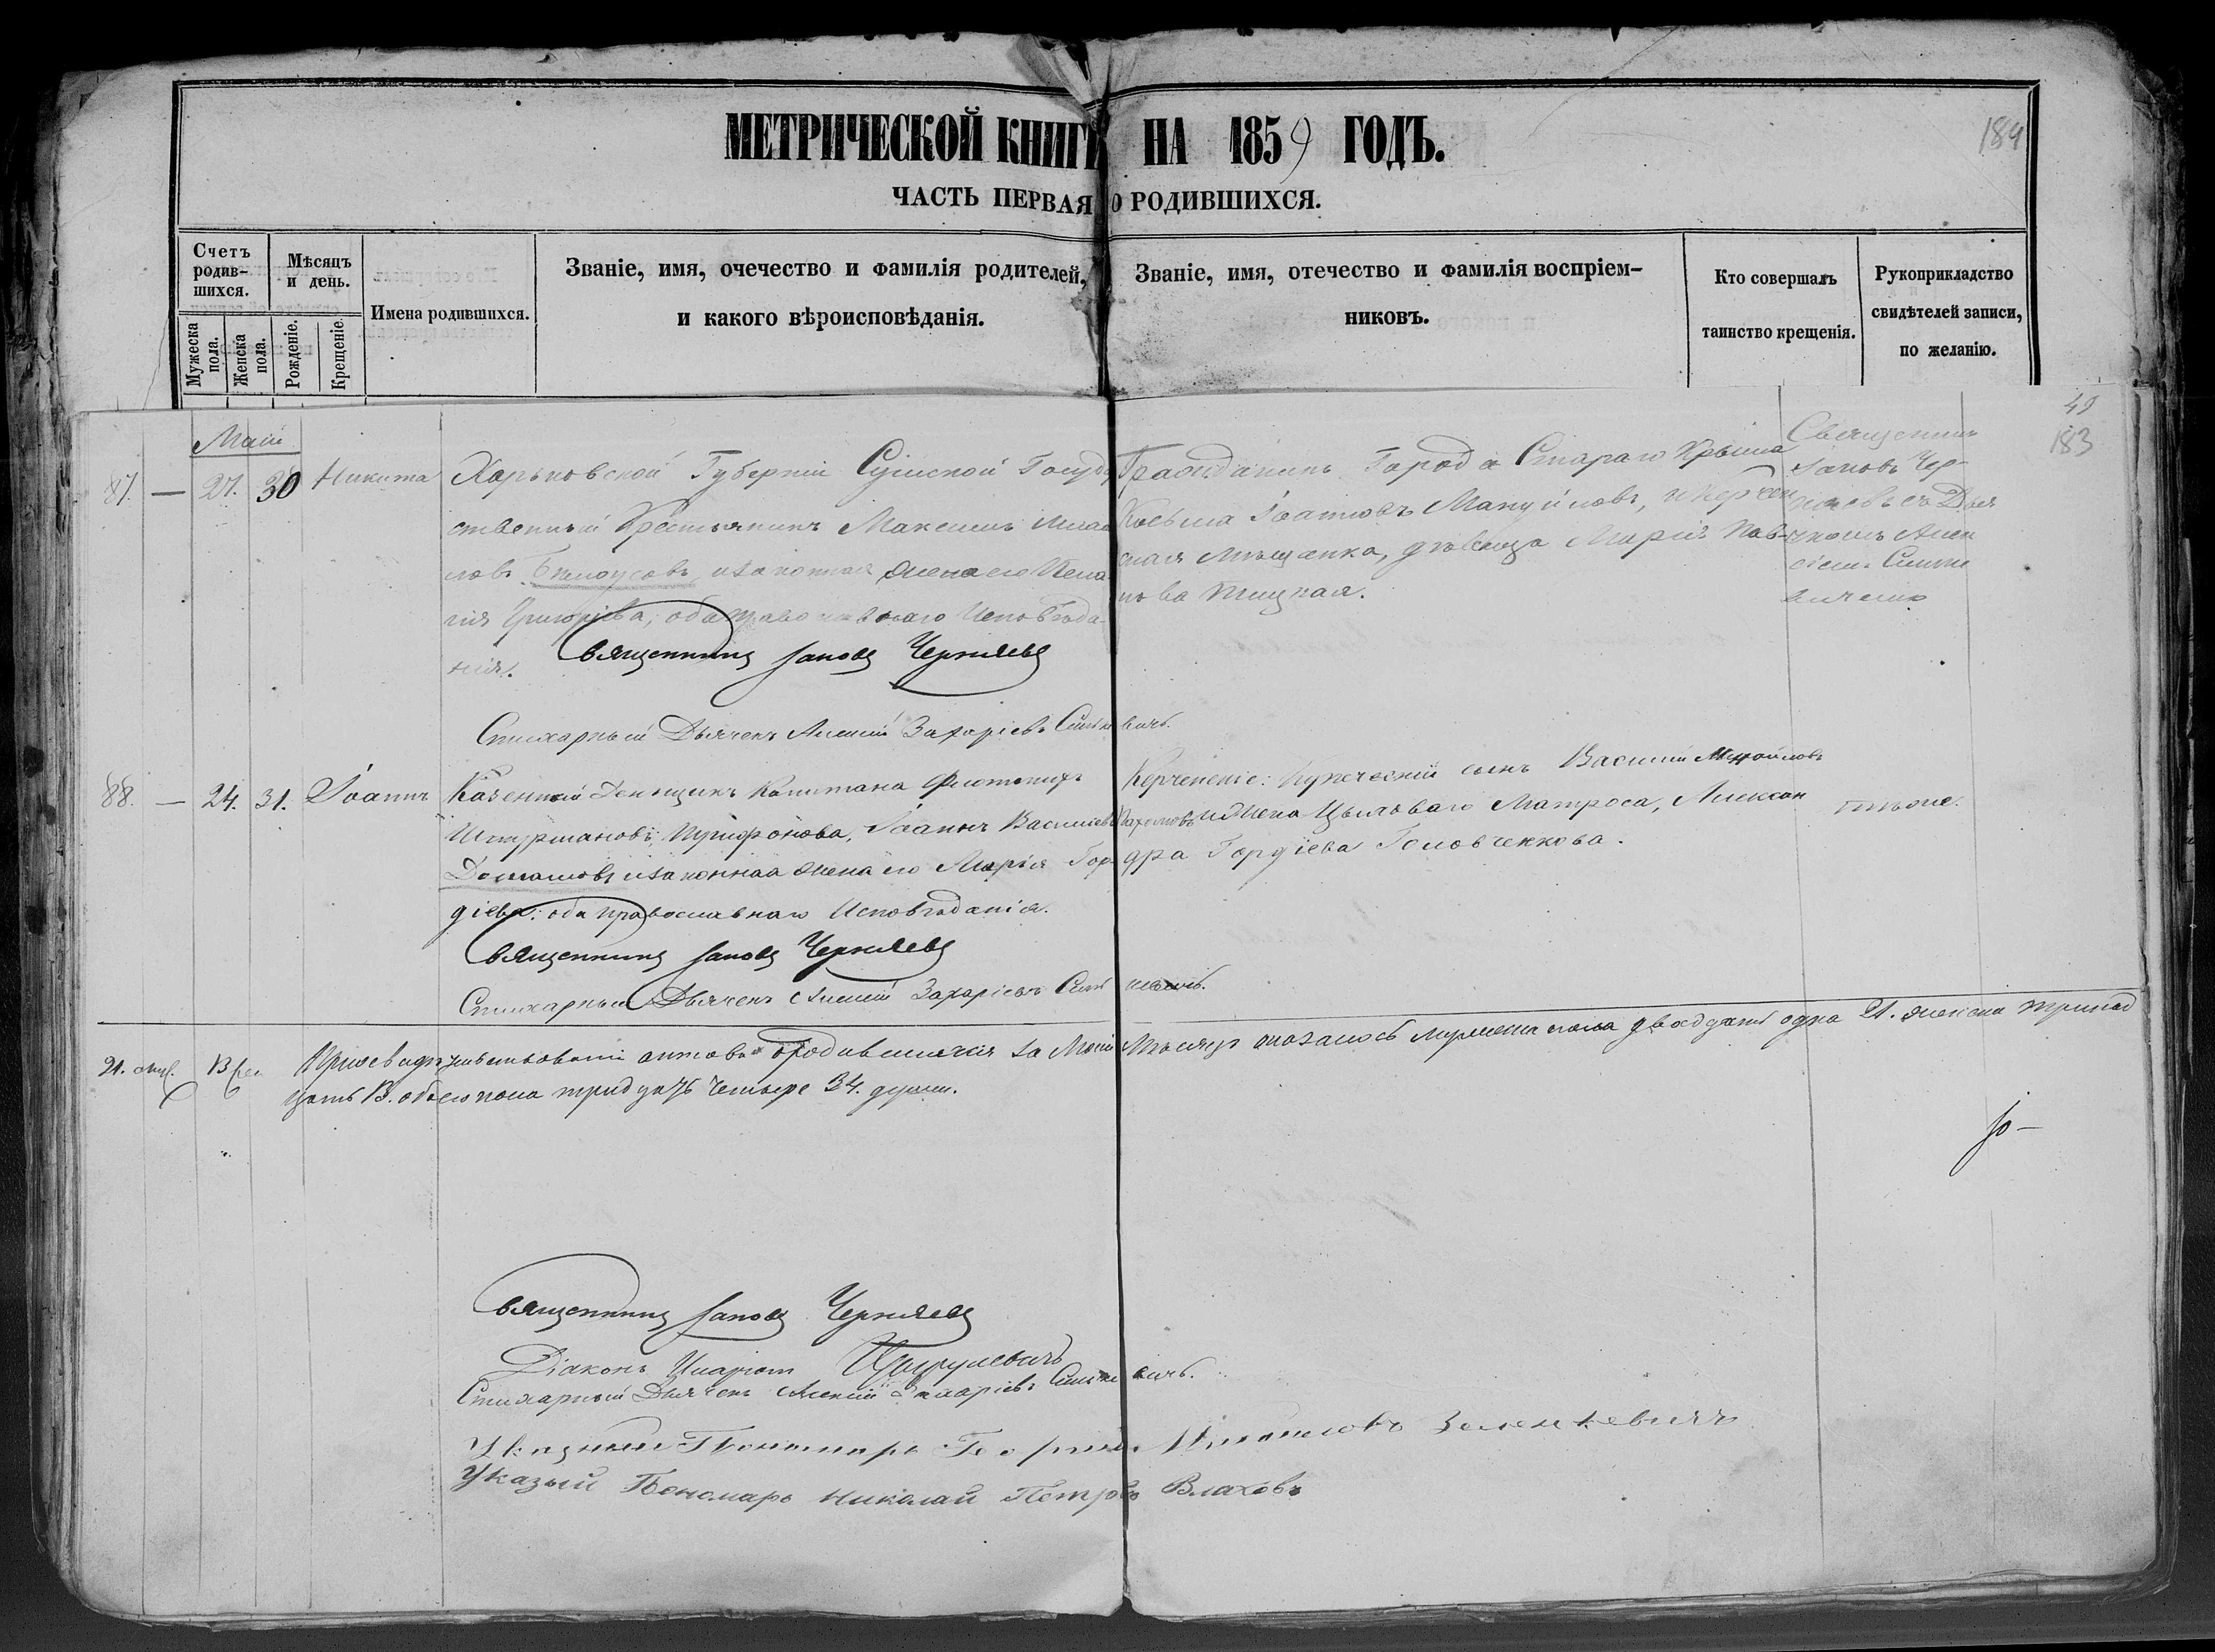 МЕТРИЧЕСКОЙ КНИГИ НА 1859 ГОДЪ.
184
ЧАСТЬ ПЕРВАЯ О РОДИВШИХСЯ.
Счетъ родив-шихся.
Мужеска пола.
Женска пола.
Мѣсяцъ и день.
Рожденіе.
Крещеніе.
Имена родившихся.
Званіе, имя, очечество и фамилія родителей,
и какого вѣроисповѣданія.
Званіе, имя, отечество и фамилія воспріем-
никовъ.
Кто совершалъ
таинство крещенія.
Рукоприкладство
свидѣтелей записи,
по желанію.
49
183
Маій
87. — 27. 30 Никита
Харьковской Губерніи Сумской Госуда
ственный Крестьянинъ Максимъ
Бѣлоусовъ, и законная жена его Пела
гія Григоріева, оба православнаго Исповѣда-
нія.
Священникъ Іаковъ Черняевъ
Стихарный Дьячекъ Алексій Захаріевъ Синькевичъ.
Гражданинъ Города Стараго Крыма
Козьма Іоанновъ Мануйловъ, и Керчен
ская Мѣщанка, дѣвица Марія Пав-
лова
Священникъ
Іаковъ Чер-
няевъ съ Дья
чкомъ Алек
сіемъ Синьке
вичемъ
88. — 24. 31. Іоаннъ
Казенный Денщикъ Капитана Флотскихъ
Штурмановъ, Іоаннъ Васильевъ
и законная жена его Марія Гор-
діева: оба православнаго Исповѣданія.
Священникъ Іаковъ Черняевъ
Стихарный Дьячекъ Алексій Захаріевъ Синькевичъ.
Керченскіе: Купеческій сынъ Василій Михайловъ
и жена Матроса, Александра Гордіева Головченкова.
тѣмъ же.
21. 13
за Маій Мѣсяцъ оказалось мужеска пола двадцать одна 21. женска тринад
цать 13. обоего пола тридцать четыре 34. души.
Священникъ Іаковъ Черняевъ
Діаконъ
Стихарный Дьячекъ Алексій Захаріевъ Синькевичъ.
Указный Пономарь Георгій Михайловъ Зеленкевичъ
Указый Пономарь Николай Петровъ Влаховъ